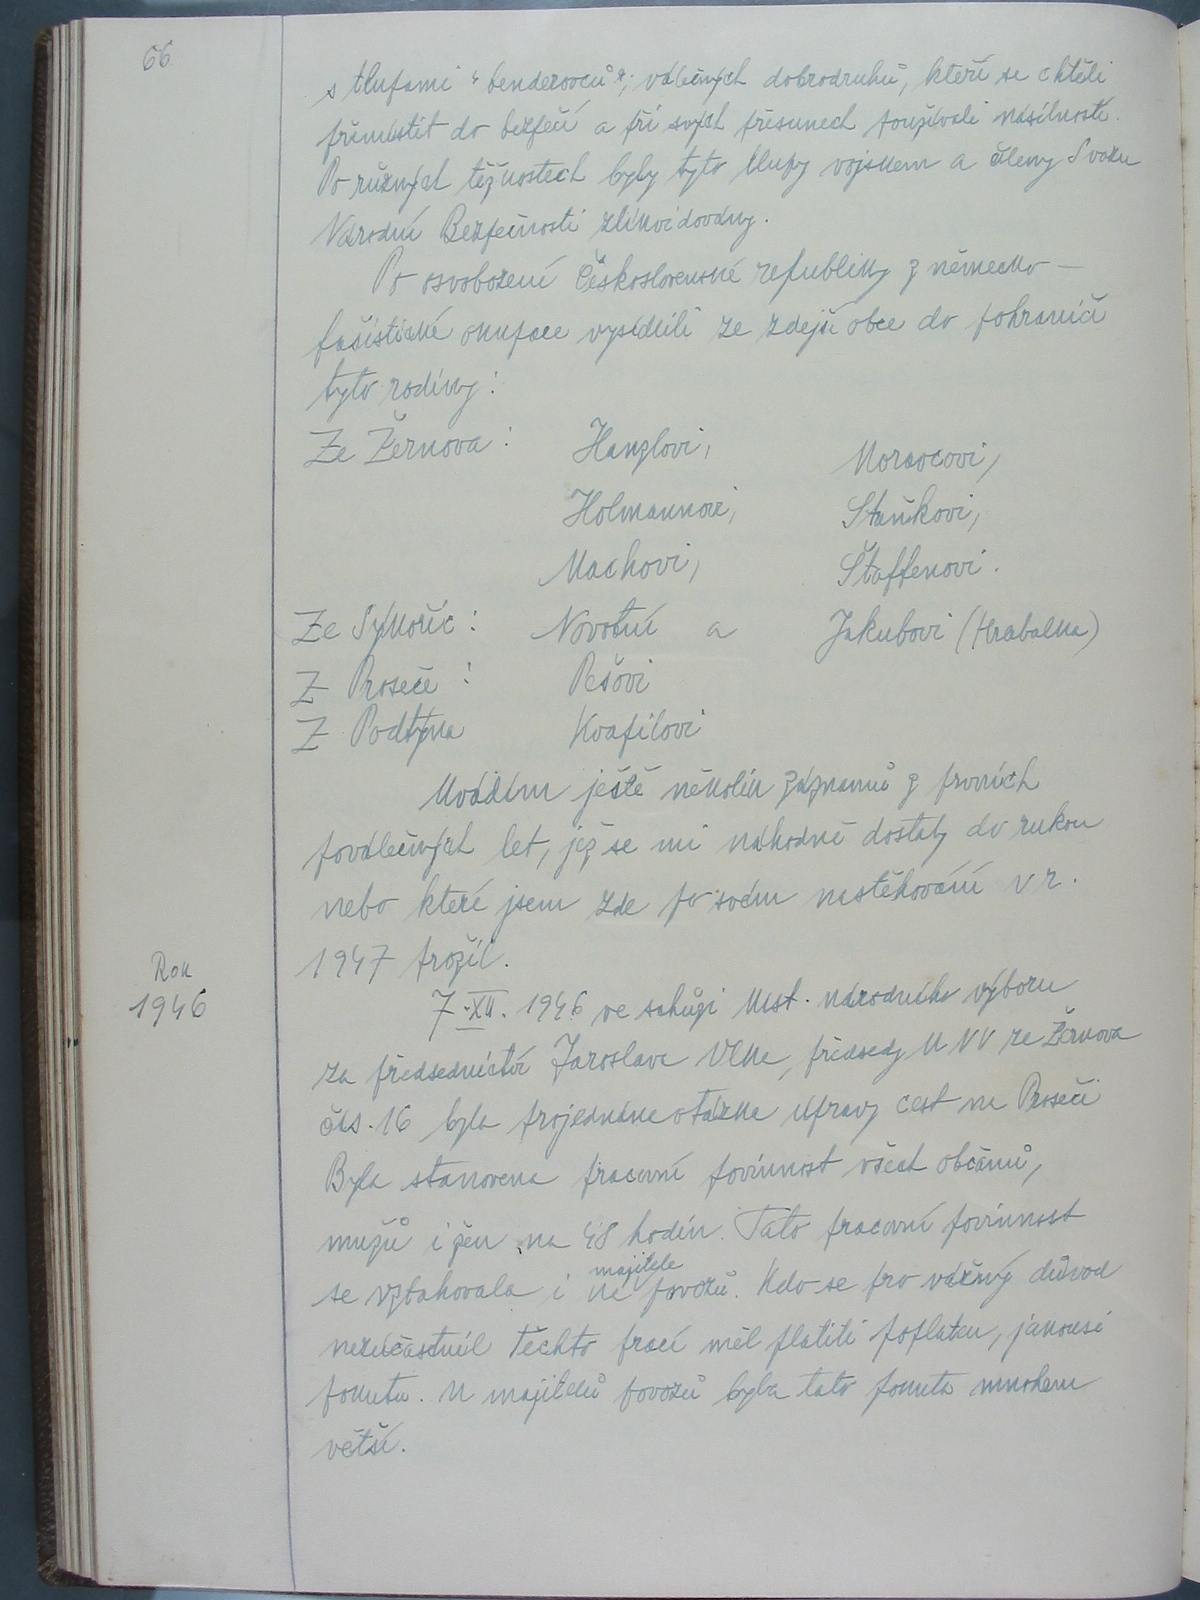 66
s tlupami "benderovců", válečných dobrodruhů, kteří se chtěli
přemístit do bezpečí a při svých přesunech používali násilností.
Po různých těžkostech byly tyto tlupy vojskem a členy Svazu
Národní Bezpečnosti zlikvidovány.
Po osvobození Československé republiky z německo –
fašistické okupace vysídlili ze zdejší obce do pohraničí
tyto rodiny:
Ze Žernova: Hanzlovi, Moravcovi,
Holmannovi, Staňkovi,
Machovi, Štaffenovi.
Ze Sýkořic: Novotní a Jakubovi (Hrabalka)
Z Proseče: Pešovi
Z Podtýna Kvapilovi
Uvádím ještě několik záznamů z prvních
poválečných let, jež se mi náhodně dostaly do rukou
nebo které jsem zde po svém nastěhování v r.
1947 prožil.
Rok
1946
7.XII. 1946 ve schůzi Míst. národního výboru
za předsednictví Jaroslava Vlka, předsedy MNV ze Žernova
čís. 16 byla projednána otázka úpravy cest na Proseči
Byla stanovena pracovní povinnost všech občanů,
mužů i žen na 48 hodin. Tato pracovní povinnost
se vztahovala i na majitele povozů. Kdo se pro vážný důvod
nezúčastnil těchto prací měl platiti poplatek, jakousi
pokutu. U majitelů povozů byla tato pokuta mnohem
větší.